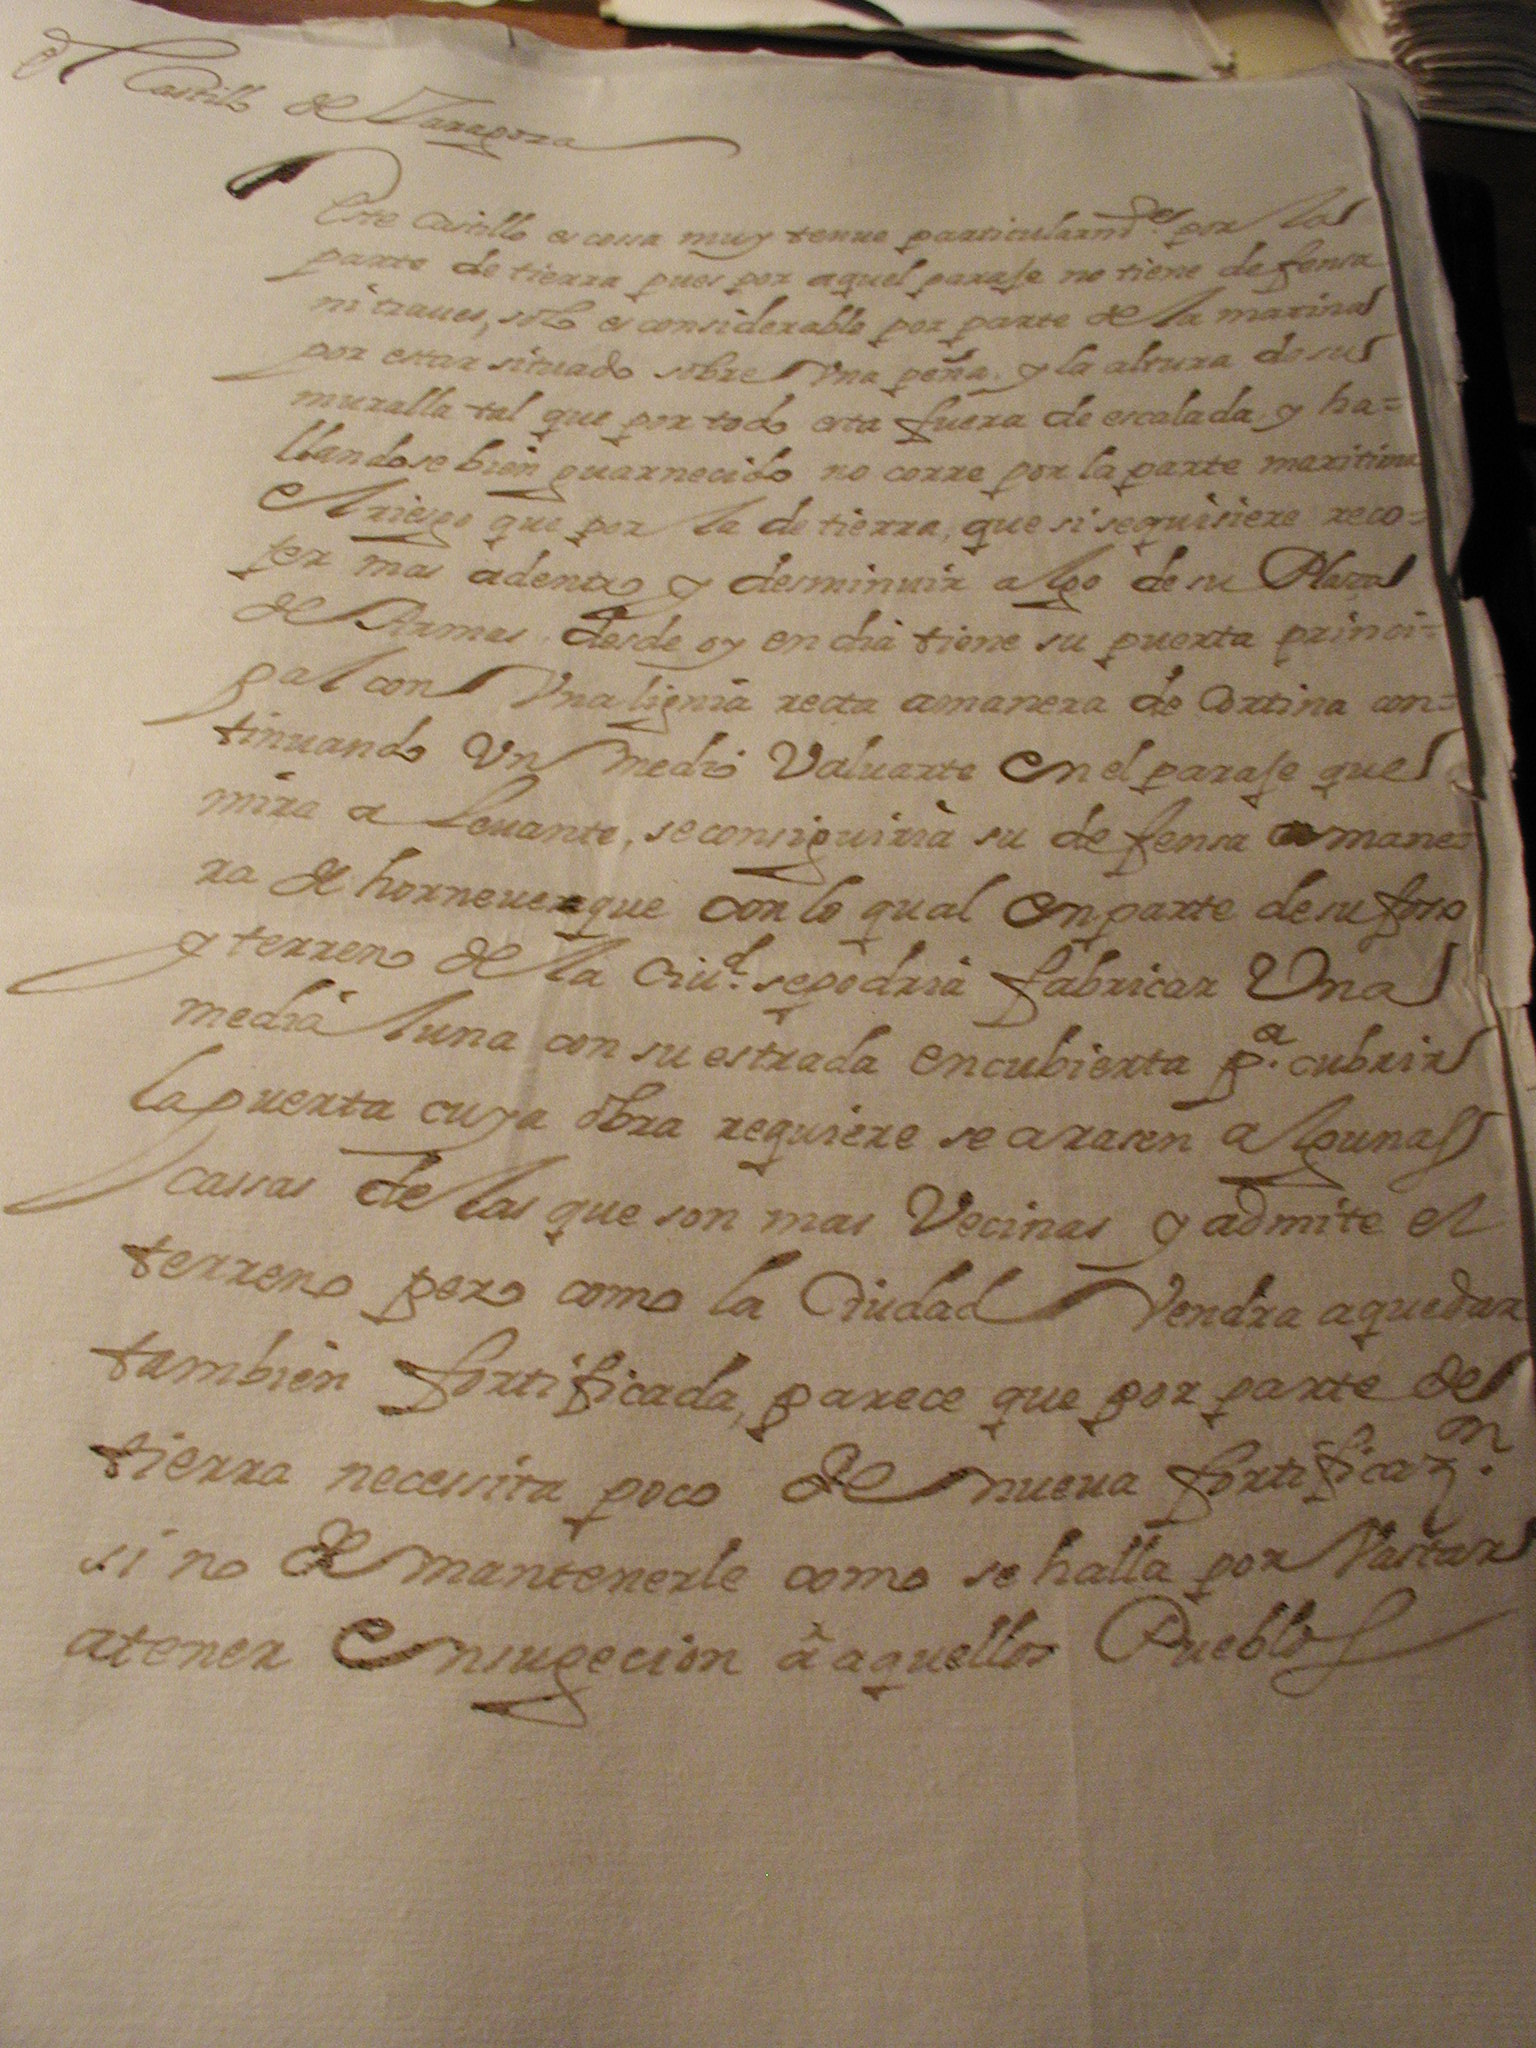 El Castillo de Taragona
Este castillo es cossa muy tenue particularmᵗᵉ por la
parte de tierra pues por aquel paraje no tiene defensa
ni traues, solo es considerable por parte de la marina
por estar situado sobre Vna peña y la altura de su
muralla tal que por todo esta fuera de escalada y ha=
llandose bien guarnecido no corre por la parte maritima
el riesgo que por la de tierra, que si se quisiere reco=
ger mas adentro y desminuir algo de su Plaza
de Armas, desde oy en dia tiene su puerta princi=
pal con Vna lignia recta a manera de Cortina con=
tinuando Vn medio Valuarte en el paraje que
mira a leuante, se consiguiria su defensa a mane=
ra de horneuerque con lo qual en parte de su foso
y terreno de la Ciuᵈ. se podria fabricar Vna
media luna con su estrada encubierta pᵃ. cubrir
la puerta cuya obra requiere se arasen algunas
cassas de las que son mas Vecinas y admite el
terreno pero como la Ciudad Vendra a quedar
tambien fortificada, parece que por parte de
tierra necessita poco de nueua fortificazᵒⁿ.
si no de mantenerle como se halla por Vastar
a tener en sugecion â aquellos Pueblos